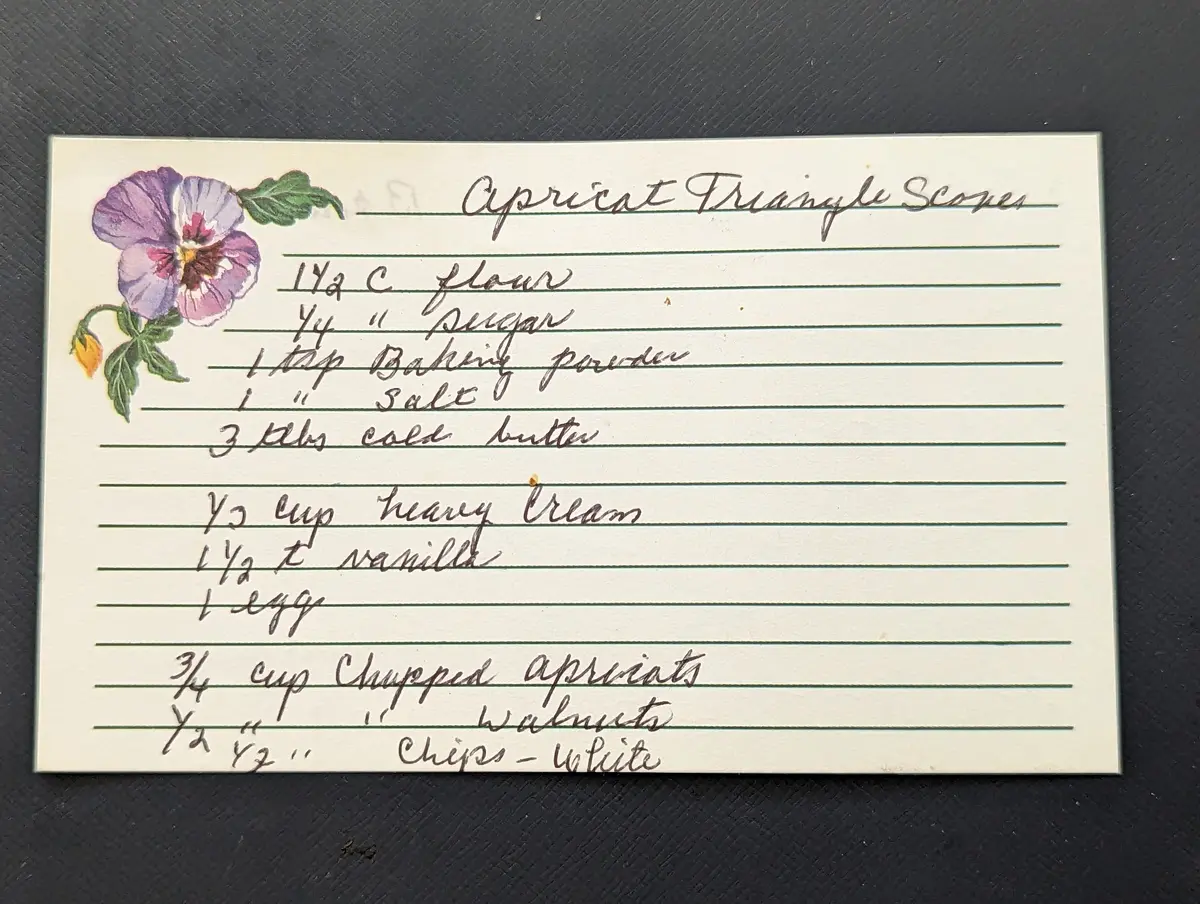 Apricot Triangle Scones
1 1/2 C flour
1/4 " sugar
1 tsp Baking powder
1 " Salt
3 tlbs cold butter
1/3 cup heavy Cream
1 1/2 t vanilla
1 egg
3/4 cup Chopped apricots
1/2 " " Walnuts
1/2 " Chips - White